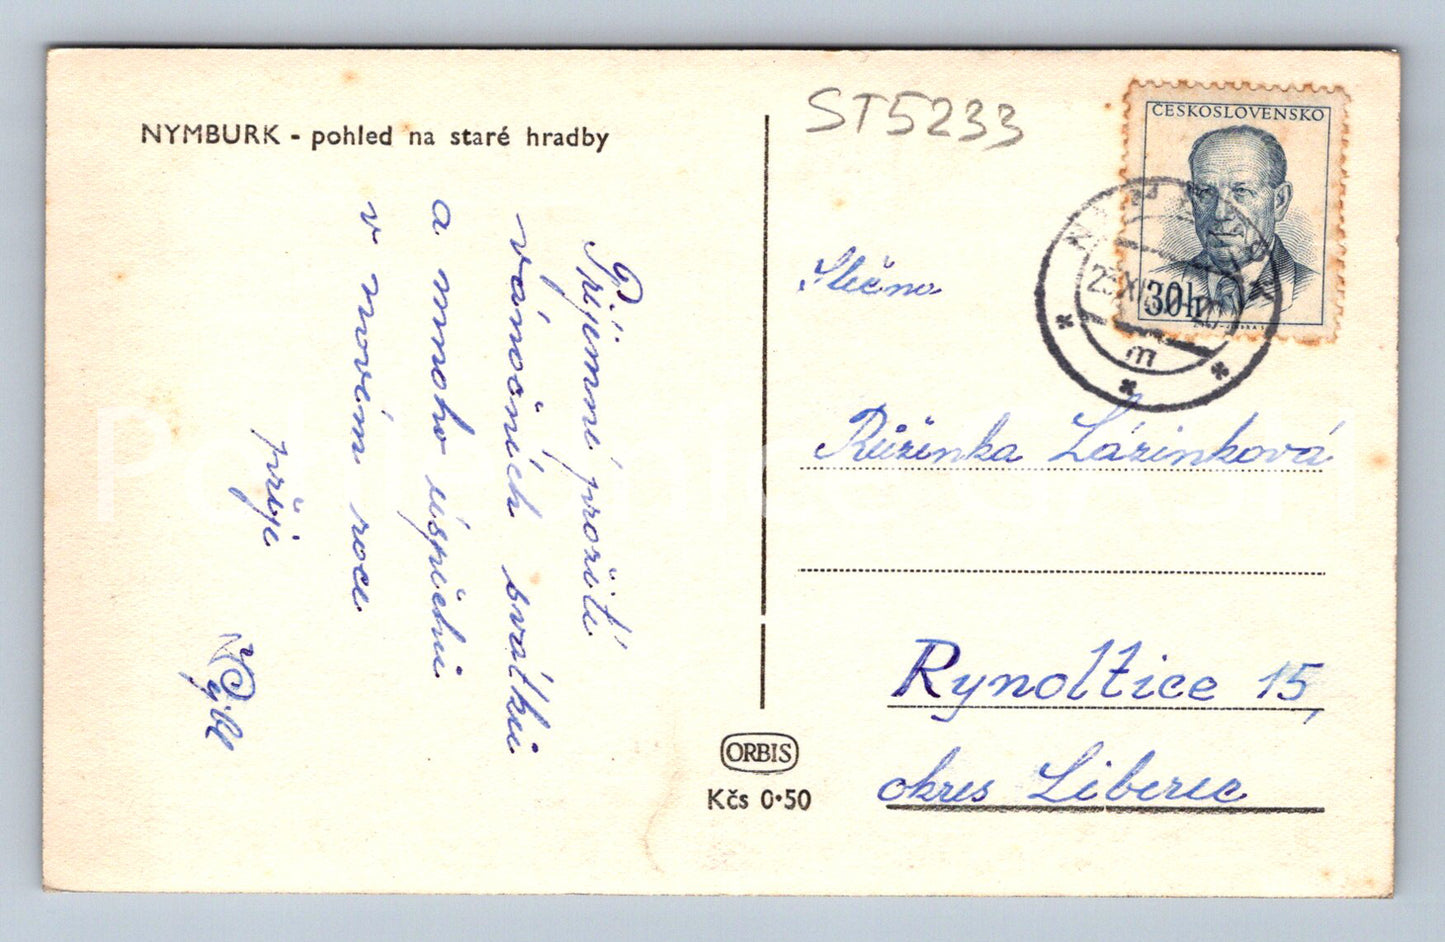 NYMBURK - pohled na staré hradby
Příjemné prožití
vánočních svátků
a mnoho úspěchů
v novém roce
přeje
ST5233
ČESKOSLOVENSKO
30h
m
Slečna
Růženka Lázinková
Rynoltice 15,
okres Liberec
ORBIS
Kčs 0·50